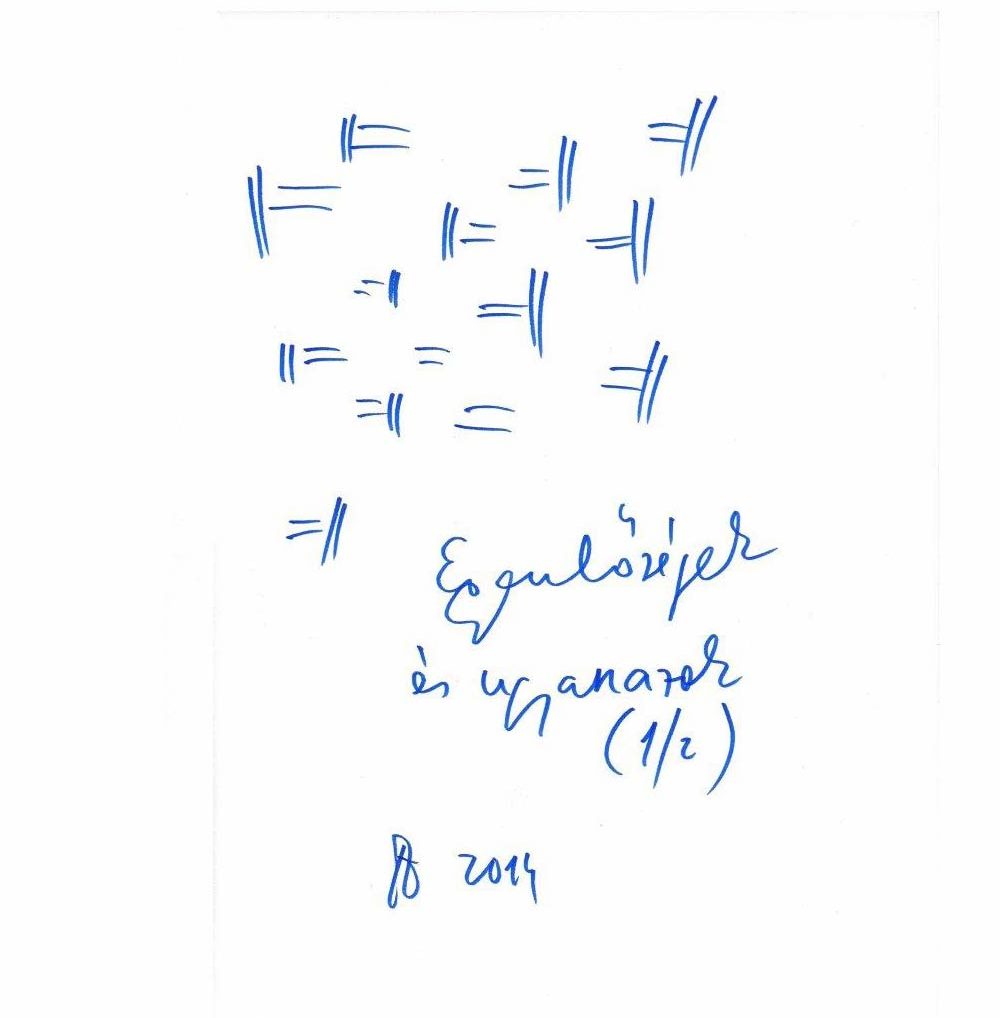 Egyenlőségek
és ugyanazok
(1/2)
2014